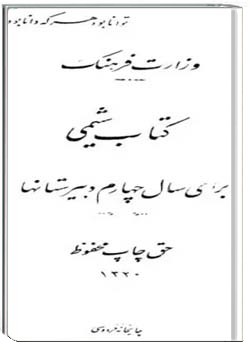 توانا بود هر که دانا بود
وزارت فرهنگ
کتاب شیمی
برای سال چهارم دبیرستانها
حق چاپ محفوظ
۱۳۲۰
چاپخانه فردوسی